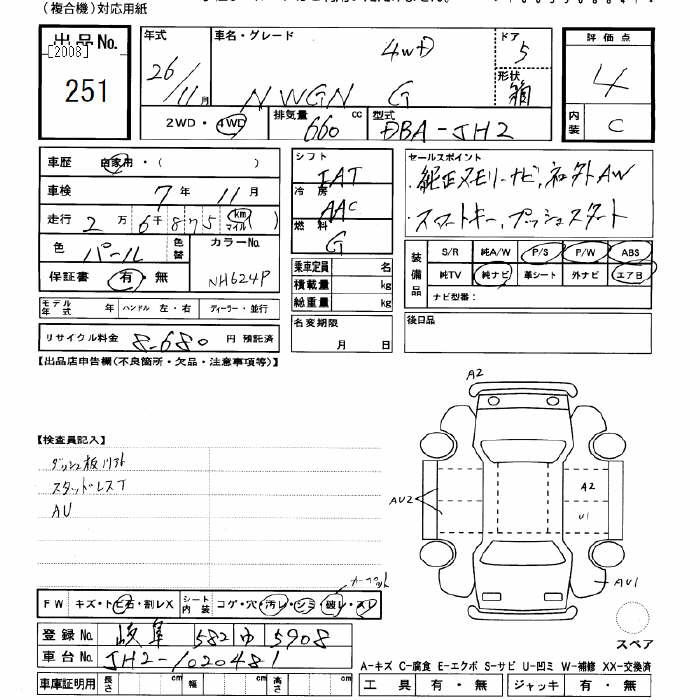 (複合機)対応用紙
出品No.
[2008]
251
年式 26/11月
車名・グレード 4WD
N WGN G
ドア 5
形状 箱
評価点 4
内装 C
2WD・4WD
排気量 660 cc
型式 DBA-JH2
車歴 自家用・( )
車検 7年 11月
走行 2万6千875 (km マイル)
色 パール 色替
カラーNo. NH624P
保証書 有・無
モデル年式 年 ハンドル 左・右 ディーラー・並行
リサイクル料金 8,680 円 預託済
シフト IAT
冷房 AAC
燃料 G
乗車定員 名
積載量 kg
総重量 kg
名変期限
月 日
セールスポイント
・純正メモリーナビ、社外AW
・スマートキー、プッシュスタート
装備品
S/R 純A/W P/S P/W ABS
純TV 純ナビ 革シート 外ナビ エアB
ナビ型番:
後日品
【出品店申告欄(不良箇所・欠品・注意事項等)】
【検査員記入】
ダッシュ板ハガレ
スタッドレスT
AU
A2
AU2
A2
U1
AU1
スペア
カーペット
FW キズ・トビ石・割レX
シート内装 コゲ・穴・汚レ・シミ・破レ・スレ
登録No. 岐阜 582 ゆ 5908
車台No. JH2-1020481
車庫証明用 長さ cm 幅 cm 高さ cm
A-キズ C-腐食 E-エクボ S-サビ U-凹ミ W-補修 XX-交換済
工具 有・無 ジャッキ 有・無